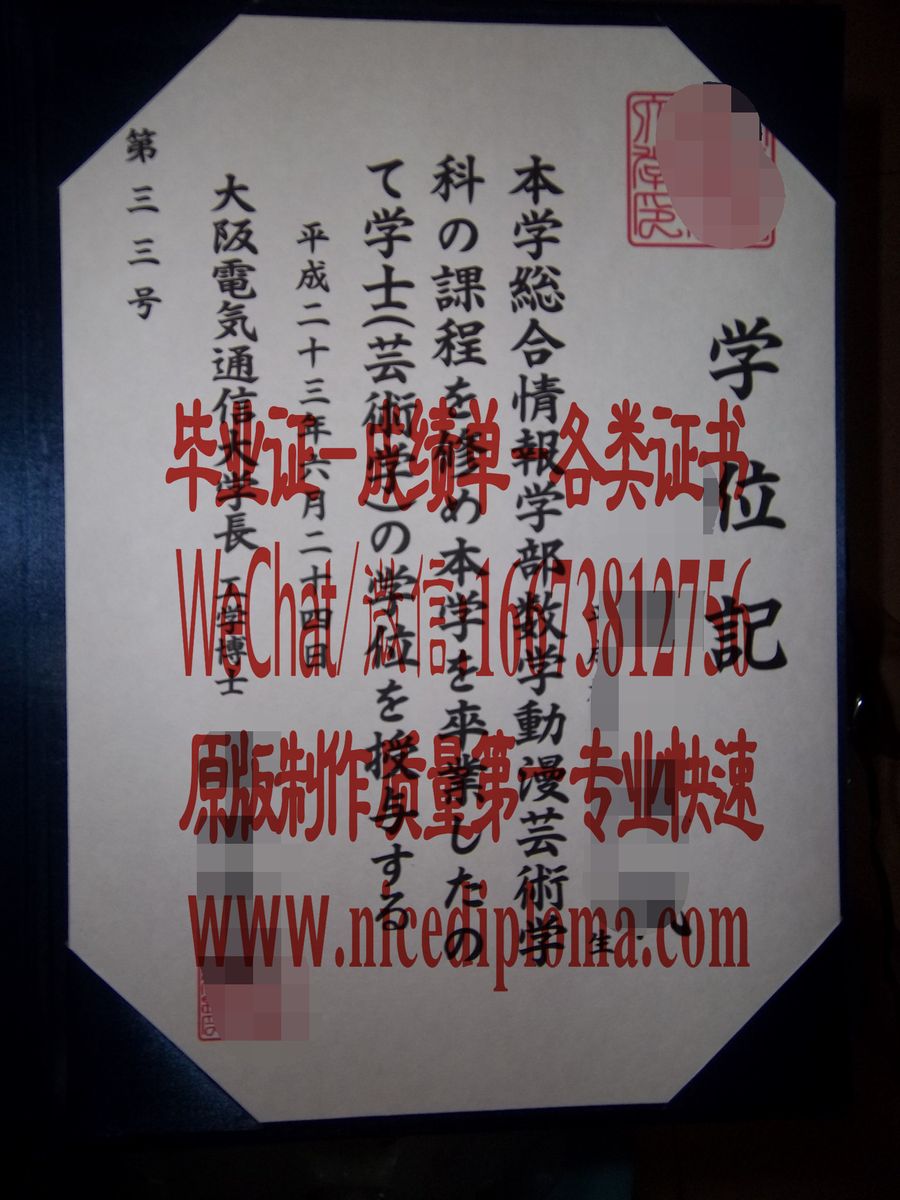 学位記
生
本学総合情報学部数学動漫芸術学
科の課程を修め本学を卒業したの
て学士(芸術学)の学位を授与する
平成二十三年六月二十四日
大阪電気通信大学長 工学博士
第三三号
毕业证-成绩单-各类证书
WeChat/微信:
原版制作 质量第一 专业快速
www.nicediploma.com